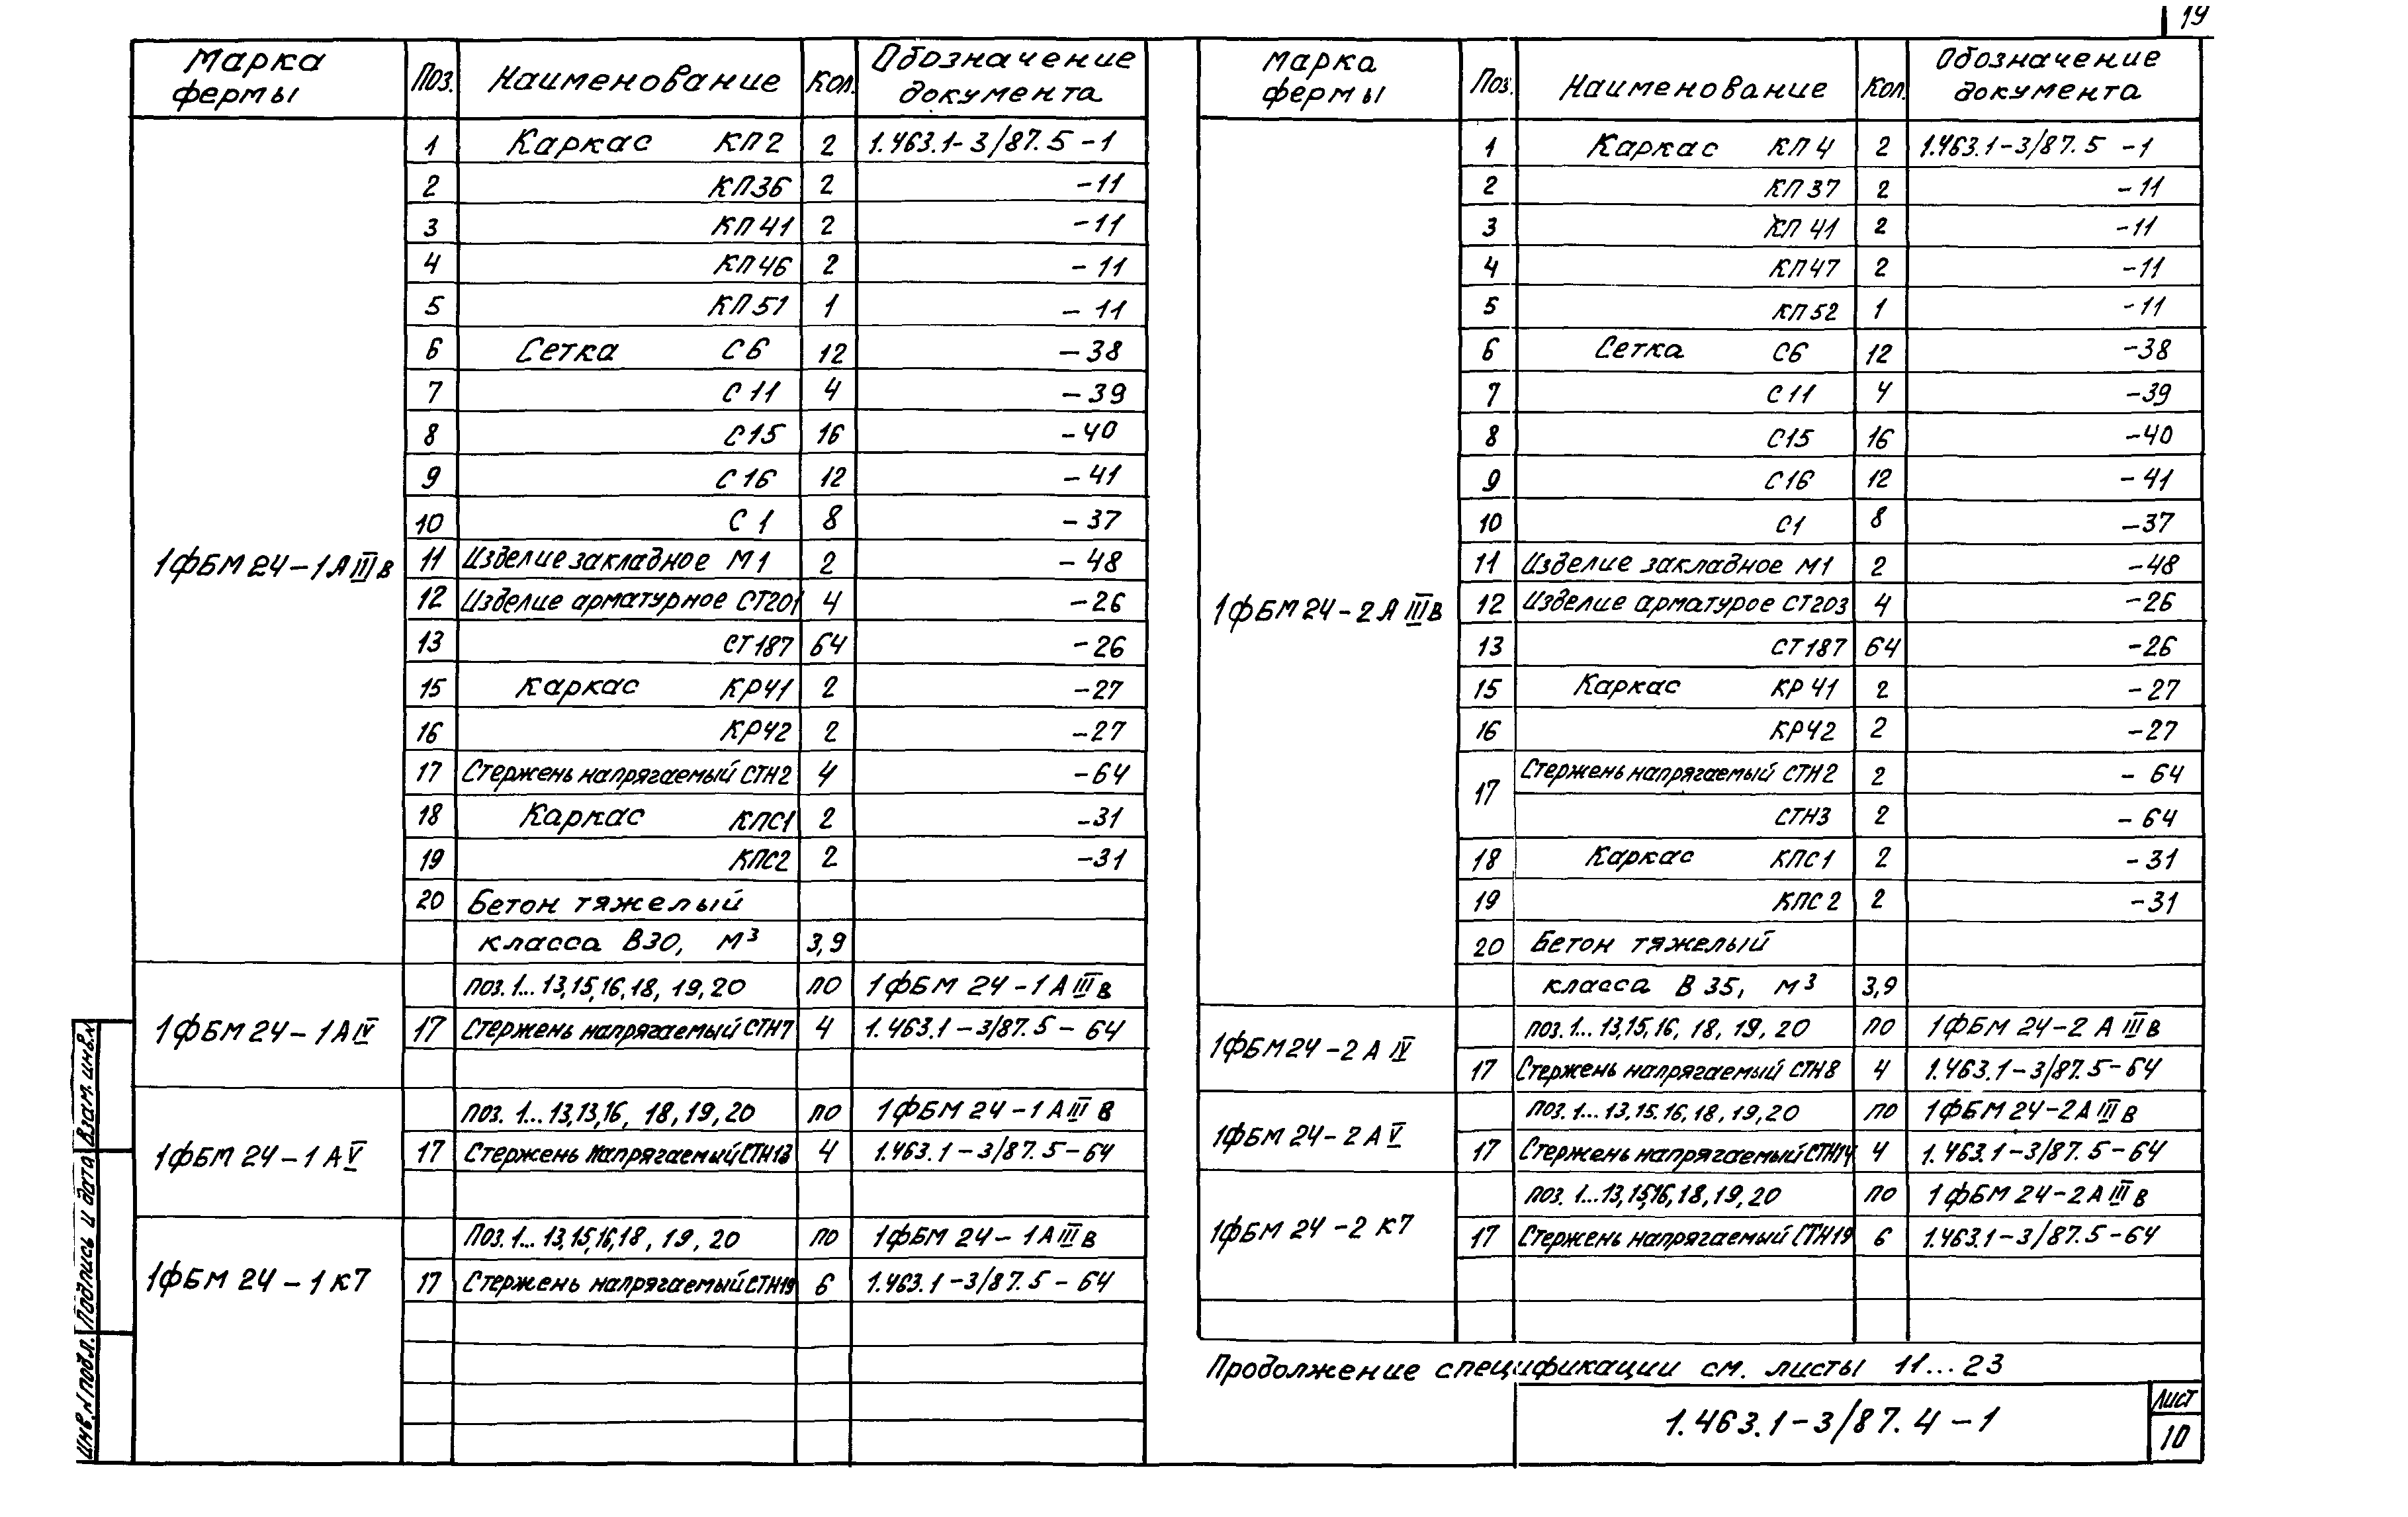 14
Марка фермы Поз. Наименование Кол. Обозначение документа
1ФБМ 24-1АIIIв
1 Каркас КП2 2 1.463.1-3/87.5 -1
2 КП36 2 -11
3 КП41 2 -11
4 КП46 2 -11
5 КП51 1 -11
6 Сетка С6 12 -38
7 С11 4 -39
8 С15 16 -40
9 С16 12 -41
10 С1 8 -37
11 Изделие закладное М1 2 -48
12 Изделие арматурное СТ201 4 -26
13 СТ187 64 -26
15 Каркас КР41 2 -27
16 КР42 2 -27
17 Стержень напрягаемый СТН2 4 -64
18 Каркас КПС1 2 -31
19 КПС2 2 -31
20 Бетон тяжелый
класса В30, м³ 3,9
1ФБМ 24-1АIV
поз. 1... 13,15,16,18, 19,20 по 1ФБМ 24-1АIIIв
17 Стержень напрягаемый СТН7 4 1.463.1-3/87.5-64
1ФБМ 24-1АV
поз. 1... 13,13,16, 18,19,20 по 1ФБМ 24-1АIIIв
17 Стержень напрягаемый СТН13 4 1.463.1-3/87.5-64
1ФБМ 24-1К7
Поз. 1... 13,15,16,18, 19, 20 по 1ФБМ 24-1АIIIв
17 Стержень напрягаемый СТН19 6 1.463.1-3/87.5-64
Марка фермы Поз. Наименование Кол. Обозначение документа
1ФБМ 24-2АIIIв
1 Каркас КП4 2 1.463.1-3/87.5 -1
2 КП37 2 -11
3 КП41 2 -11
4 КП47 2 -11
5 КП52 1 -11
6 Сетка С6 12 -38
7 С11 4 -39
8 С15 16 -40
9 С16 12 -41
10 С1 8 -37
11 Изделие закладное М1 2 -48
12 Изделие арматурое СТ203 4 -26
13 СТ187 64 -26
15 Каркас КР41 2 -27
16 КР42 2 -27
17 Стержень напрягаемый СТН2 2 -64
СТН3 2 -64
18 Каркас КПС1 2 -31
19 КПС2 2 -31
20 Бетон тяжелый
класса В 35, м³ 3,9
1ФБМ 24-2АIV
поз. 1... 13,15,16, 18, 19, 20 по 1ФБМ 24-2АIIIв
17 Стержень напрягаемый СТН8 4 1.463.1-3/87.5-64
1ФБМ 24-2АV
поз. 1... 13,15.16,18,19,20 по 1ФБМ 24-2АIIIв
17 Стержень напрягаемый СТН14 4 1.463.1-3/87.5-64
1ФБМ 24-2К7
поз. 1...13,15,16,18,19,20 по 1ФБМ 24-2АIIIв
17 Стержень напрягаемый СТН19 6 1.463.1-3/87.5-64
Продолжение спецификации см. листы 11...23
1.463.1-3/87.4-1
Лист
10
Инв.N подл. Подпись и дата Взам. инв.N